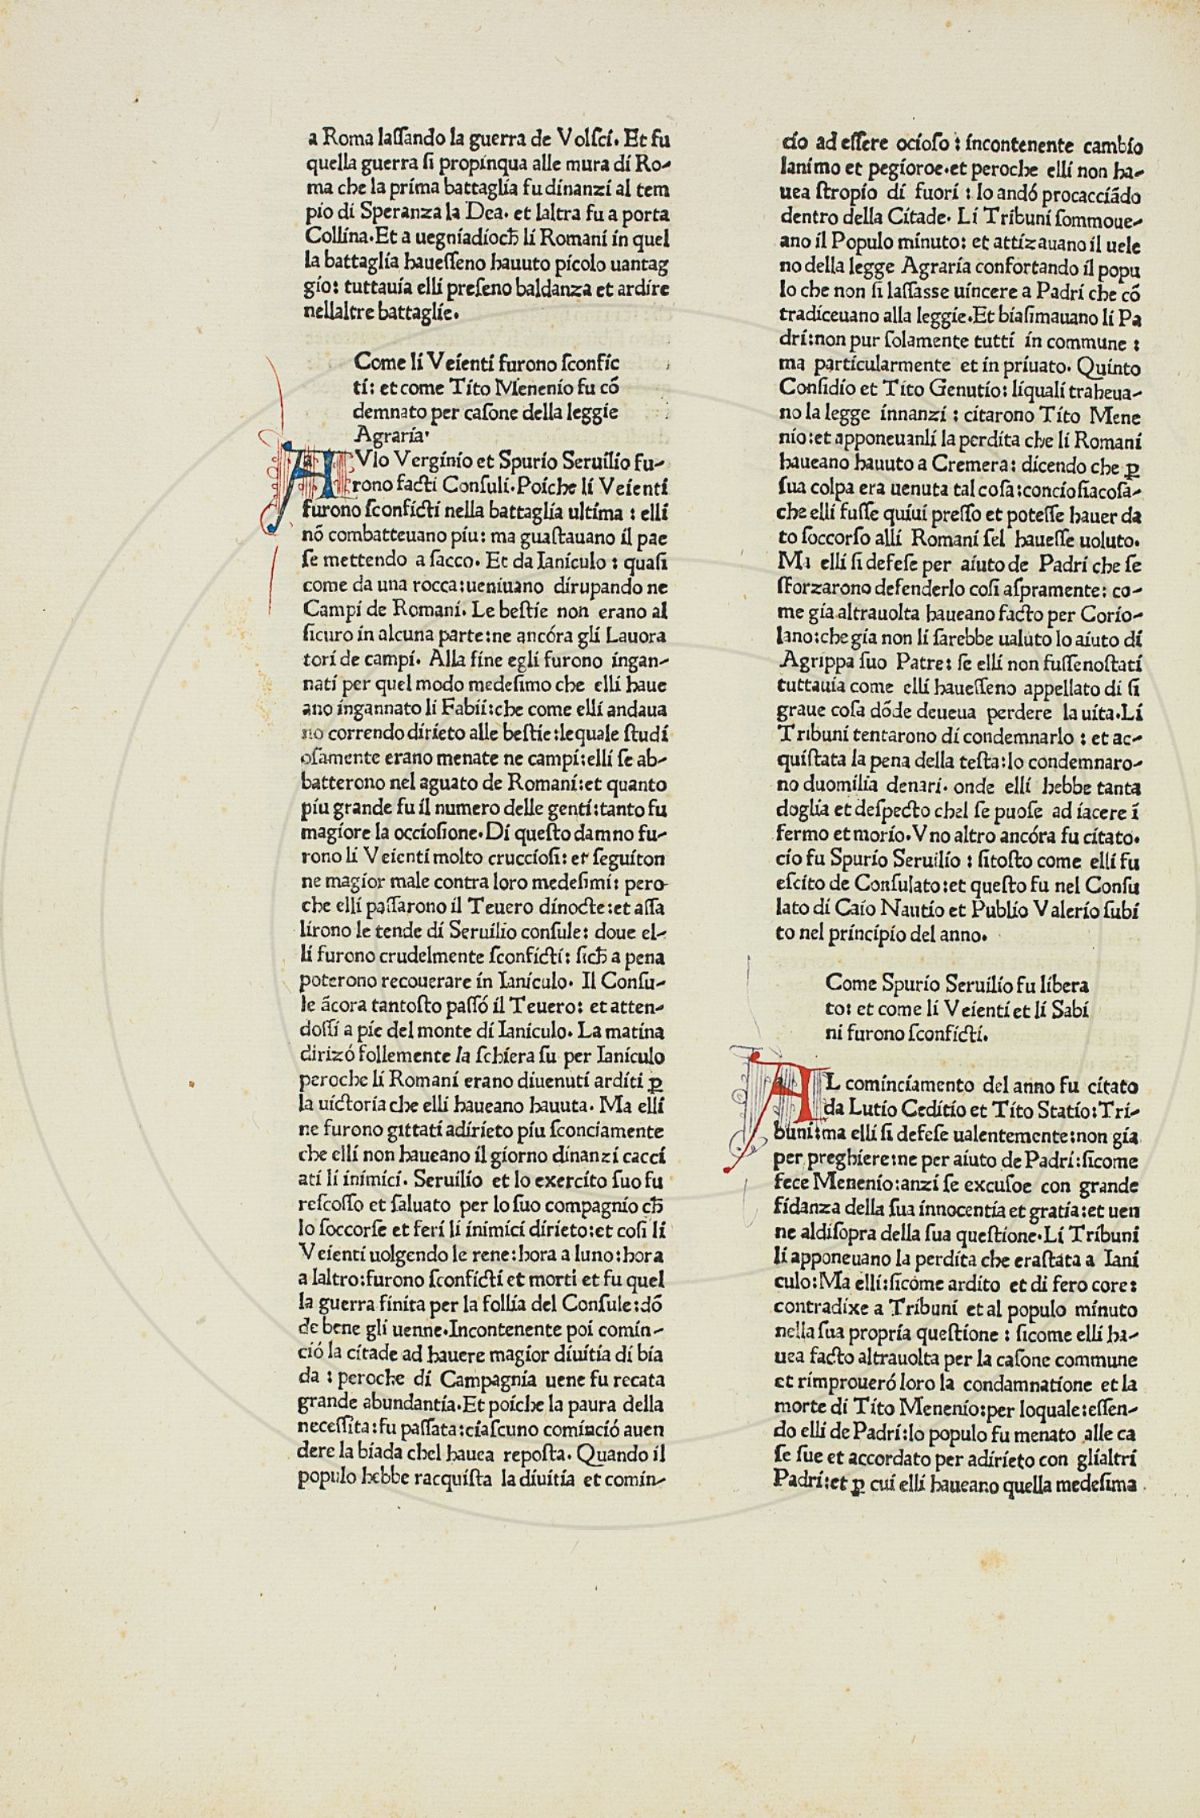 a Roma laſſando la guerra de Volſci. Et fu
quella guerra ſi propinqua alle mura di Ro-
ma che la prima battaglia fu dinanzi al tem
pio di Speranza la Dea. et laltra fu a porta
Collina. Et a uegniadioch̄ li Romani in quel
la battaglia haueſſeno hauuto picolo uantag
gio: tuttauia elli preſeno baldanza et ardire
nellaltre battaglie.
Come li Veienti furono ſconfic
ti: et come Tito Menenio fu cō
demnato per caſone della leggie
Agraria.
AVlo Verginio et Spurio Seruilio fu-
rono facti Conſuli. Poiche li Veienti
furono ſconficti nella battaglia ultima : elli
nō combatteuano piu: ma guaſtauano il pae
ſe mettendo a ſacco. Et da Ianiculo : quaſi
come da una rocca:ueniuano dirupando ne
Campi de Romani. Le beſtie non erano al
ſicuro in alcuna parte:ne ancóra gli Lauora
tori de campi. Alla fine egli furono ingan-
nati per quel modo medeſimo che elli haue
ano ingannato li Fabii:che come elli andaua
no correndo dirieto alle beſtie:lequale ſtudi
oſamente erano menate ne campi:elli ſe ab-
batterono nel aguato de Romani:et quanto
piu grande fu il numero delle genti:tanto fu
magiore la occioſione. Di queſto damno fu-
rono li Veienti molto crucciоſi: et ſeguiton
ne magior male contra loro medeſimi: pero-
che elli paſſarono il Teuero dinocte:et aſſa
lirono le tende di Seruilio conſule: doue el-
li furono crudelmente ſconficti: ſich̄ a pena
poterono recouerare in Ianiculo. Il Conſu-
le ācora tantoſto paſſó il Teuero: et atten-
doſſi a pie del monte di Ianiculo. La matina
dirizó follemente la ſchiera ſu per Ianiculo
peroche li Romani erano diuenuti arditi ꝑ
la uictoria che elli haueano hauuta. Ma elli
ne furono gittati adirieto piu ſconciamente
che elli non haueano il giorno dinanzi cacci
ati li inimici. Seruilio et lo exercito ſuo fu
reſcoſſo et ſaluato per lo ſuo compagnio ch̄
lo ſoccorſe et feri li inimici dirieto:et coſi li
Veienti uolgendo le rene:hora a luno:hora
a laltro:furono ſconficti et morti et fu quel
la guerra finita per la follia del Conſule:dō
de bene gli uenne. Incontenente poi comin-
ció la citade ad hauere magior diuitia di bia
da : peroche di Campagnia uene fu recata
grande abundantia. Et poiche la paura della
neceſſita:fu paſſata:ciaſcuno cominció auen
dere la biada chel hauea repoſta. Quando il
populo hebbe racquiſta la diuitia et comin-
cio ad eſſere ocioſo : incontenente cambio
lanimo et pegioroe.et peroche elli non ha-
uea ſtropio di fuori : lo andó procacciādo
dentro della Citade. Li Tribuni ſommoue-
ano il Populo minuto: et attizauano il uele
no della legge Agraria confortando il popu
lo che non ſi laſſaſſe uincere a Padri che cō
tradiceuano alla leggie. Et biaſimauano li Pa
dri:non pur ſolamente tutti in commune :
ma particularmente et in priuato. Quinto
Conſidio et Tito Genutio: liquali traheua-
no la legge innanzi : citarono Tito Mene
nio:et apponeuanli la perdita che li Romani
haueano hauuto a Cremera: dicendo che ꝑ
ſua colpa era uenuta tal coſa:concioſiacoſa-
che elli fuſſe quiui preſſo et poteſſe hauer da
to ſoccorſo alli Romani ſel haueſſe uoluto.
Ma elli ſi defeſe per aiuto de Padri che ſe
ſforzarono defenderlo coſi aſpramente: co-
me gia altrauolta haueano facto per Corio-
lano:che gia non li ſarebbe ualuto lo aiuto di
Agrippa ſuo Patre: ſe elli non fuſſenoſtati
tuttauia come elli haueſſeno appellato di ſi
graue coſa dōde deueua perdere la uita. Li
Tribuni tentarono di condemnarlo : et ac-
quiſtata la pena della teſta:lo condemnaro-
no duomilia denari. onde elli hebbe tanta
doglia et deſpecto chel ſe puoſe ad iacere ī
fermo et morio. Vno altro ancóra fu citato.
cio fu Spurio Seruilio : ſitoſto come elli fu
eſcito de Conſulato:et queſto fu nel Conſu
lato di Caio Nautio et Publio Valerio ſubi
to nel principio del anno.
Come Spurio Seruilio fu libera
to: et come li Veienti et li Sabi
ni furono ſconficti.
AL cominciamento del anno fu citato
da Lutio Ceditio et Tito Statio:Tri-
buni:ma elli ſi defeſe ualentemente:non gia
per preghiere:ne per aiuto de Padri:ſicome
fece Menenio:anzi ſe excuſoe con grande
fidanza della ſua innocentia et gratia:et uen
ne aldiſopra della ſua queſtione. Li Tribuni
li apponeuano la perdita che eraſtata a Iani
culo:Ma elli:ſicome ardito et di fero core:
contradixe a Tribuni et al populo minuto
nella ſua propria queſtione : ſicome elli ha-
uea facto altrauolta per la caſone commune
et rimproueró loro la condamnatione et la
morte di Tito Menenio:per loquale:eſſen-
do elli de Padri:lo populo fu menato alle ca
ſe ſue et accordato per adirieto con glialtri
Padri:et ꝑ cui elli haueano quella medeſima